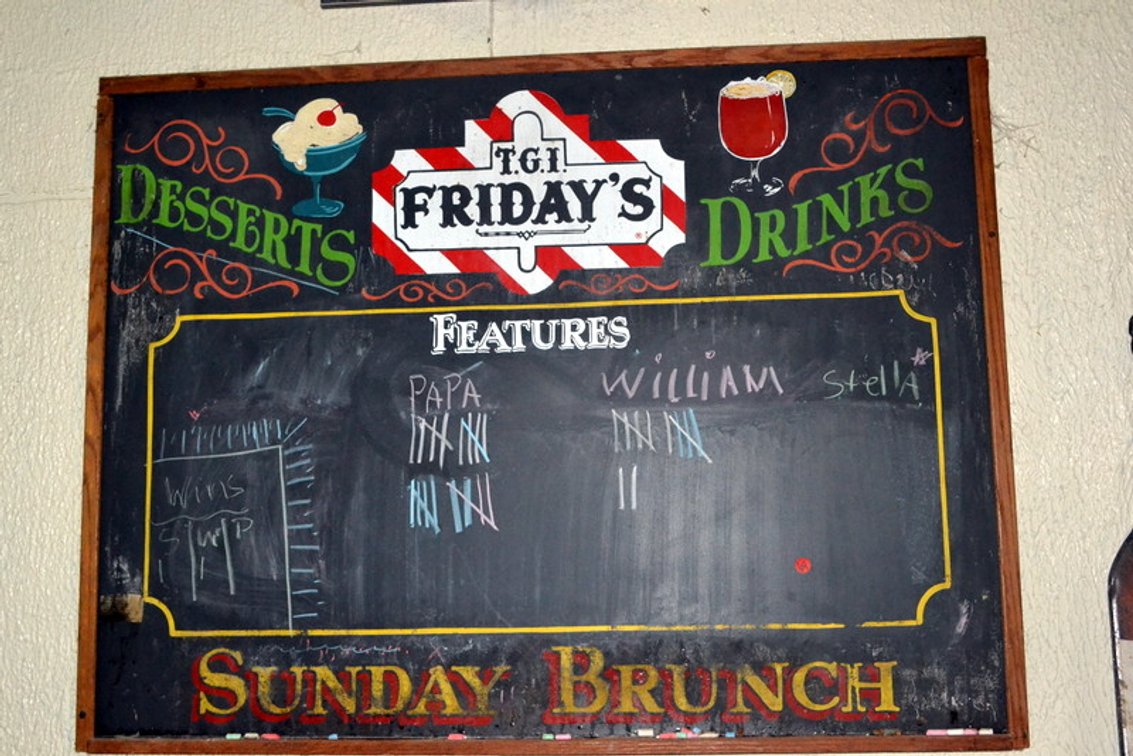 T.G.I.
FRIDAY'S
DESSERTS
DRINKS
FEATURES
PAPA
WILLIAM
Stella
Wins
S W P
SUNDAY BRUNCH